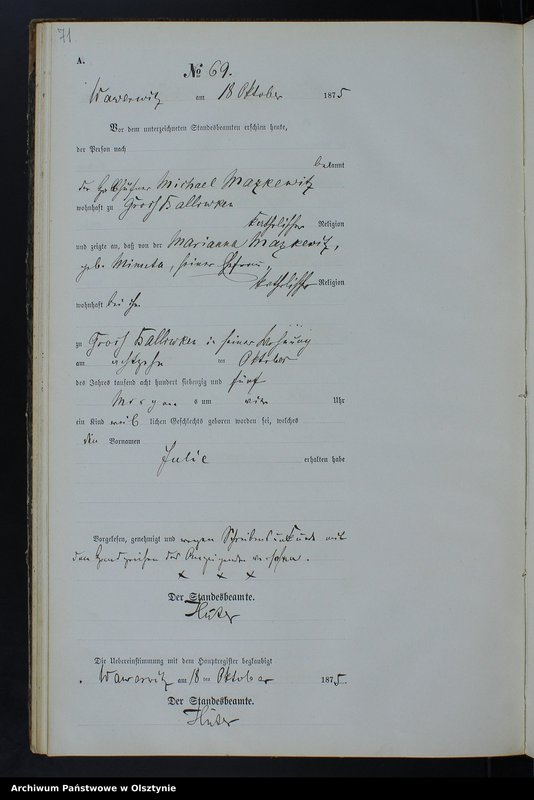 71
A.
№ 69.
Wawerwitz am 18 Oktober 1875
Vor dem unterzeichneten Standesbeamten erschien heute,
der Person nach
bekannt
der Michael Mazkewitz
wohnhaft zu Groß Ballowken
katholischer Religion
und zeigte an, daß von der Marianna Mazkewitz,
geb. Minuta, seiner Ehefrau,
katholischer Religion
wohnhaft bei ihm
zu Groß Ballowken in seiner Wohnung
am achtzehn ten Oktober
des Jahres tausend acht hundert siebenzig und fünf
Morgens um vier Uhr
ein Kind weiblichen Geschlechts geboren worden sei, welches
den Vornamen
Julie
erhalten habe
Vorgelesen, genehmigt und wegen Schreibensunkunde mit
dem Handzeichen des Anzeigenden versehen.
x x x
Der Standesbeamte.
Hüter
Die Uebereinstimmung mit dem Hauptregister beglaubigt
Wawerwitz am 18 ten Oktober 1875.
Der Standesbeamte.
Hüter
Archiwum Państwowe w Olsztynie